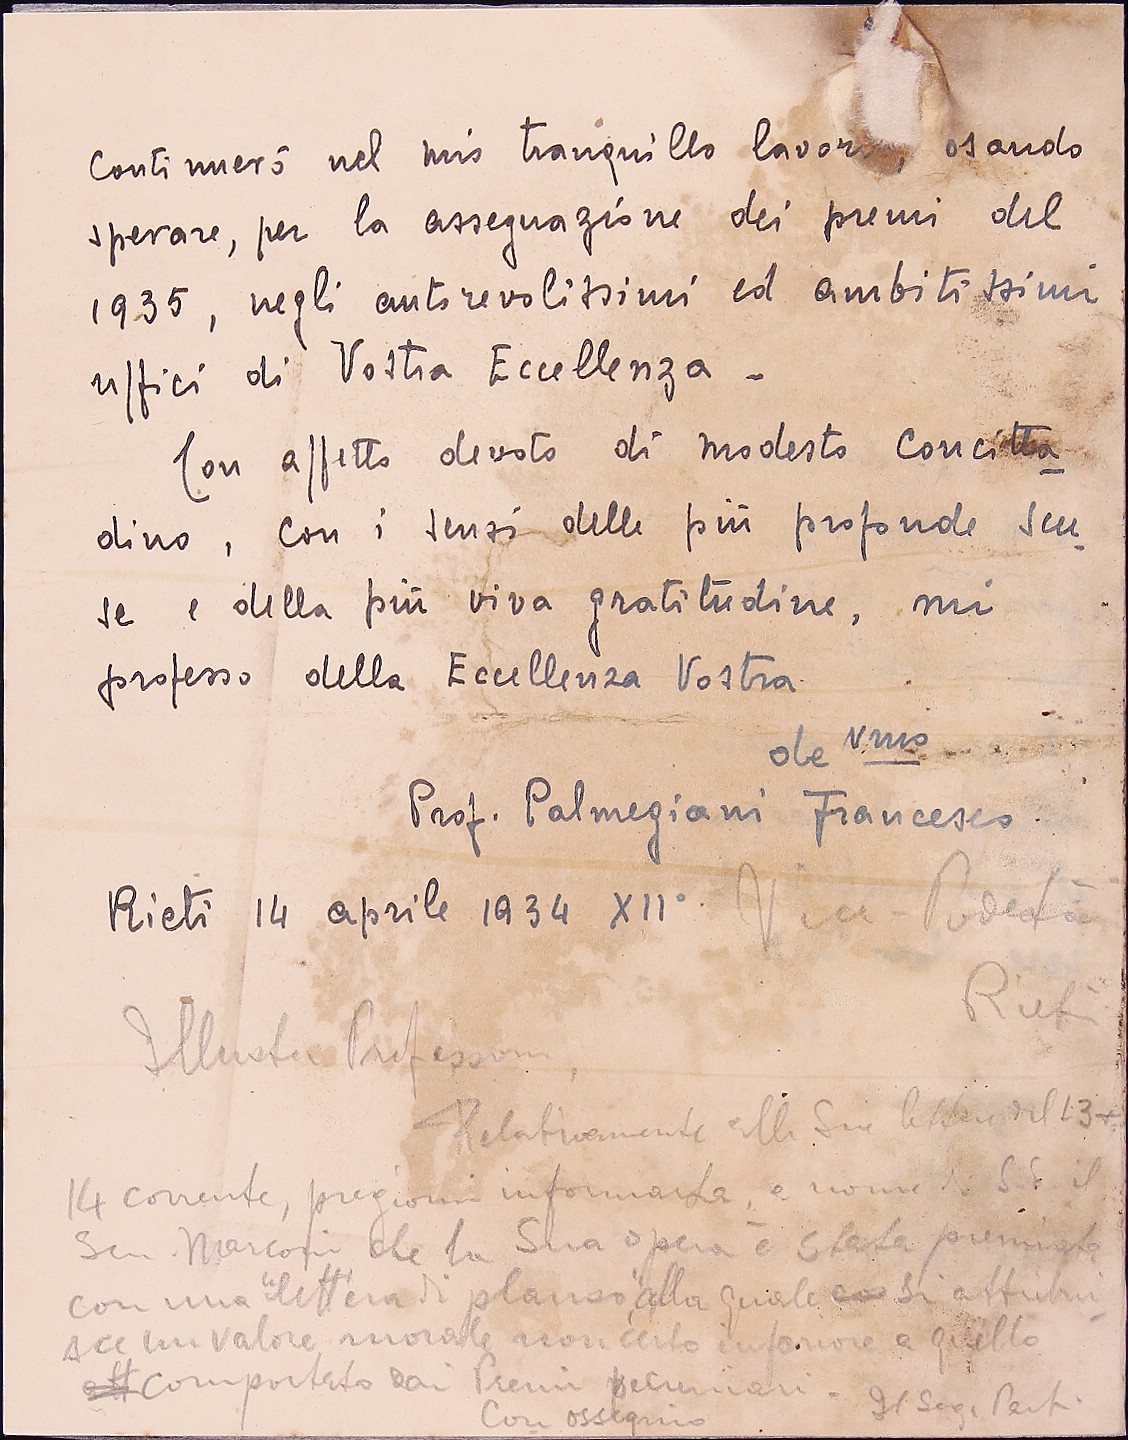 continuerò nel mio tranquillo lavoro, osando
sperare, per la assegnazione dei premi del
1935, negli autorevolissimi ed ambitissimi
uffici di Vostra Eccellenza -
Con affetto devoto di modesto concitta
dino, con i sensi delle più profonde scu-
se e della più viva gratitudine, mi
professo della Eccellenza Vostra
devmo
Prof. Palmegiani Francesco
Rieti 14 aprile 1934 XII°
Vice Podestà
Rieti
Illustre Professore,
Relativamente alle Sue lettere del 13 e
14 corrente, pregiomi informarla, a nome di S.E. il
Sen. Marconi che la Sua opera è stata premiata
con una "lettera di plauso" alla quale si attribui-
sce un valore morale non certo inferiore a quello
comportato dai Premi pecuniari.
Con ossequio
Il Seg. Part.